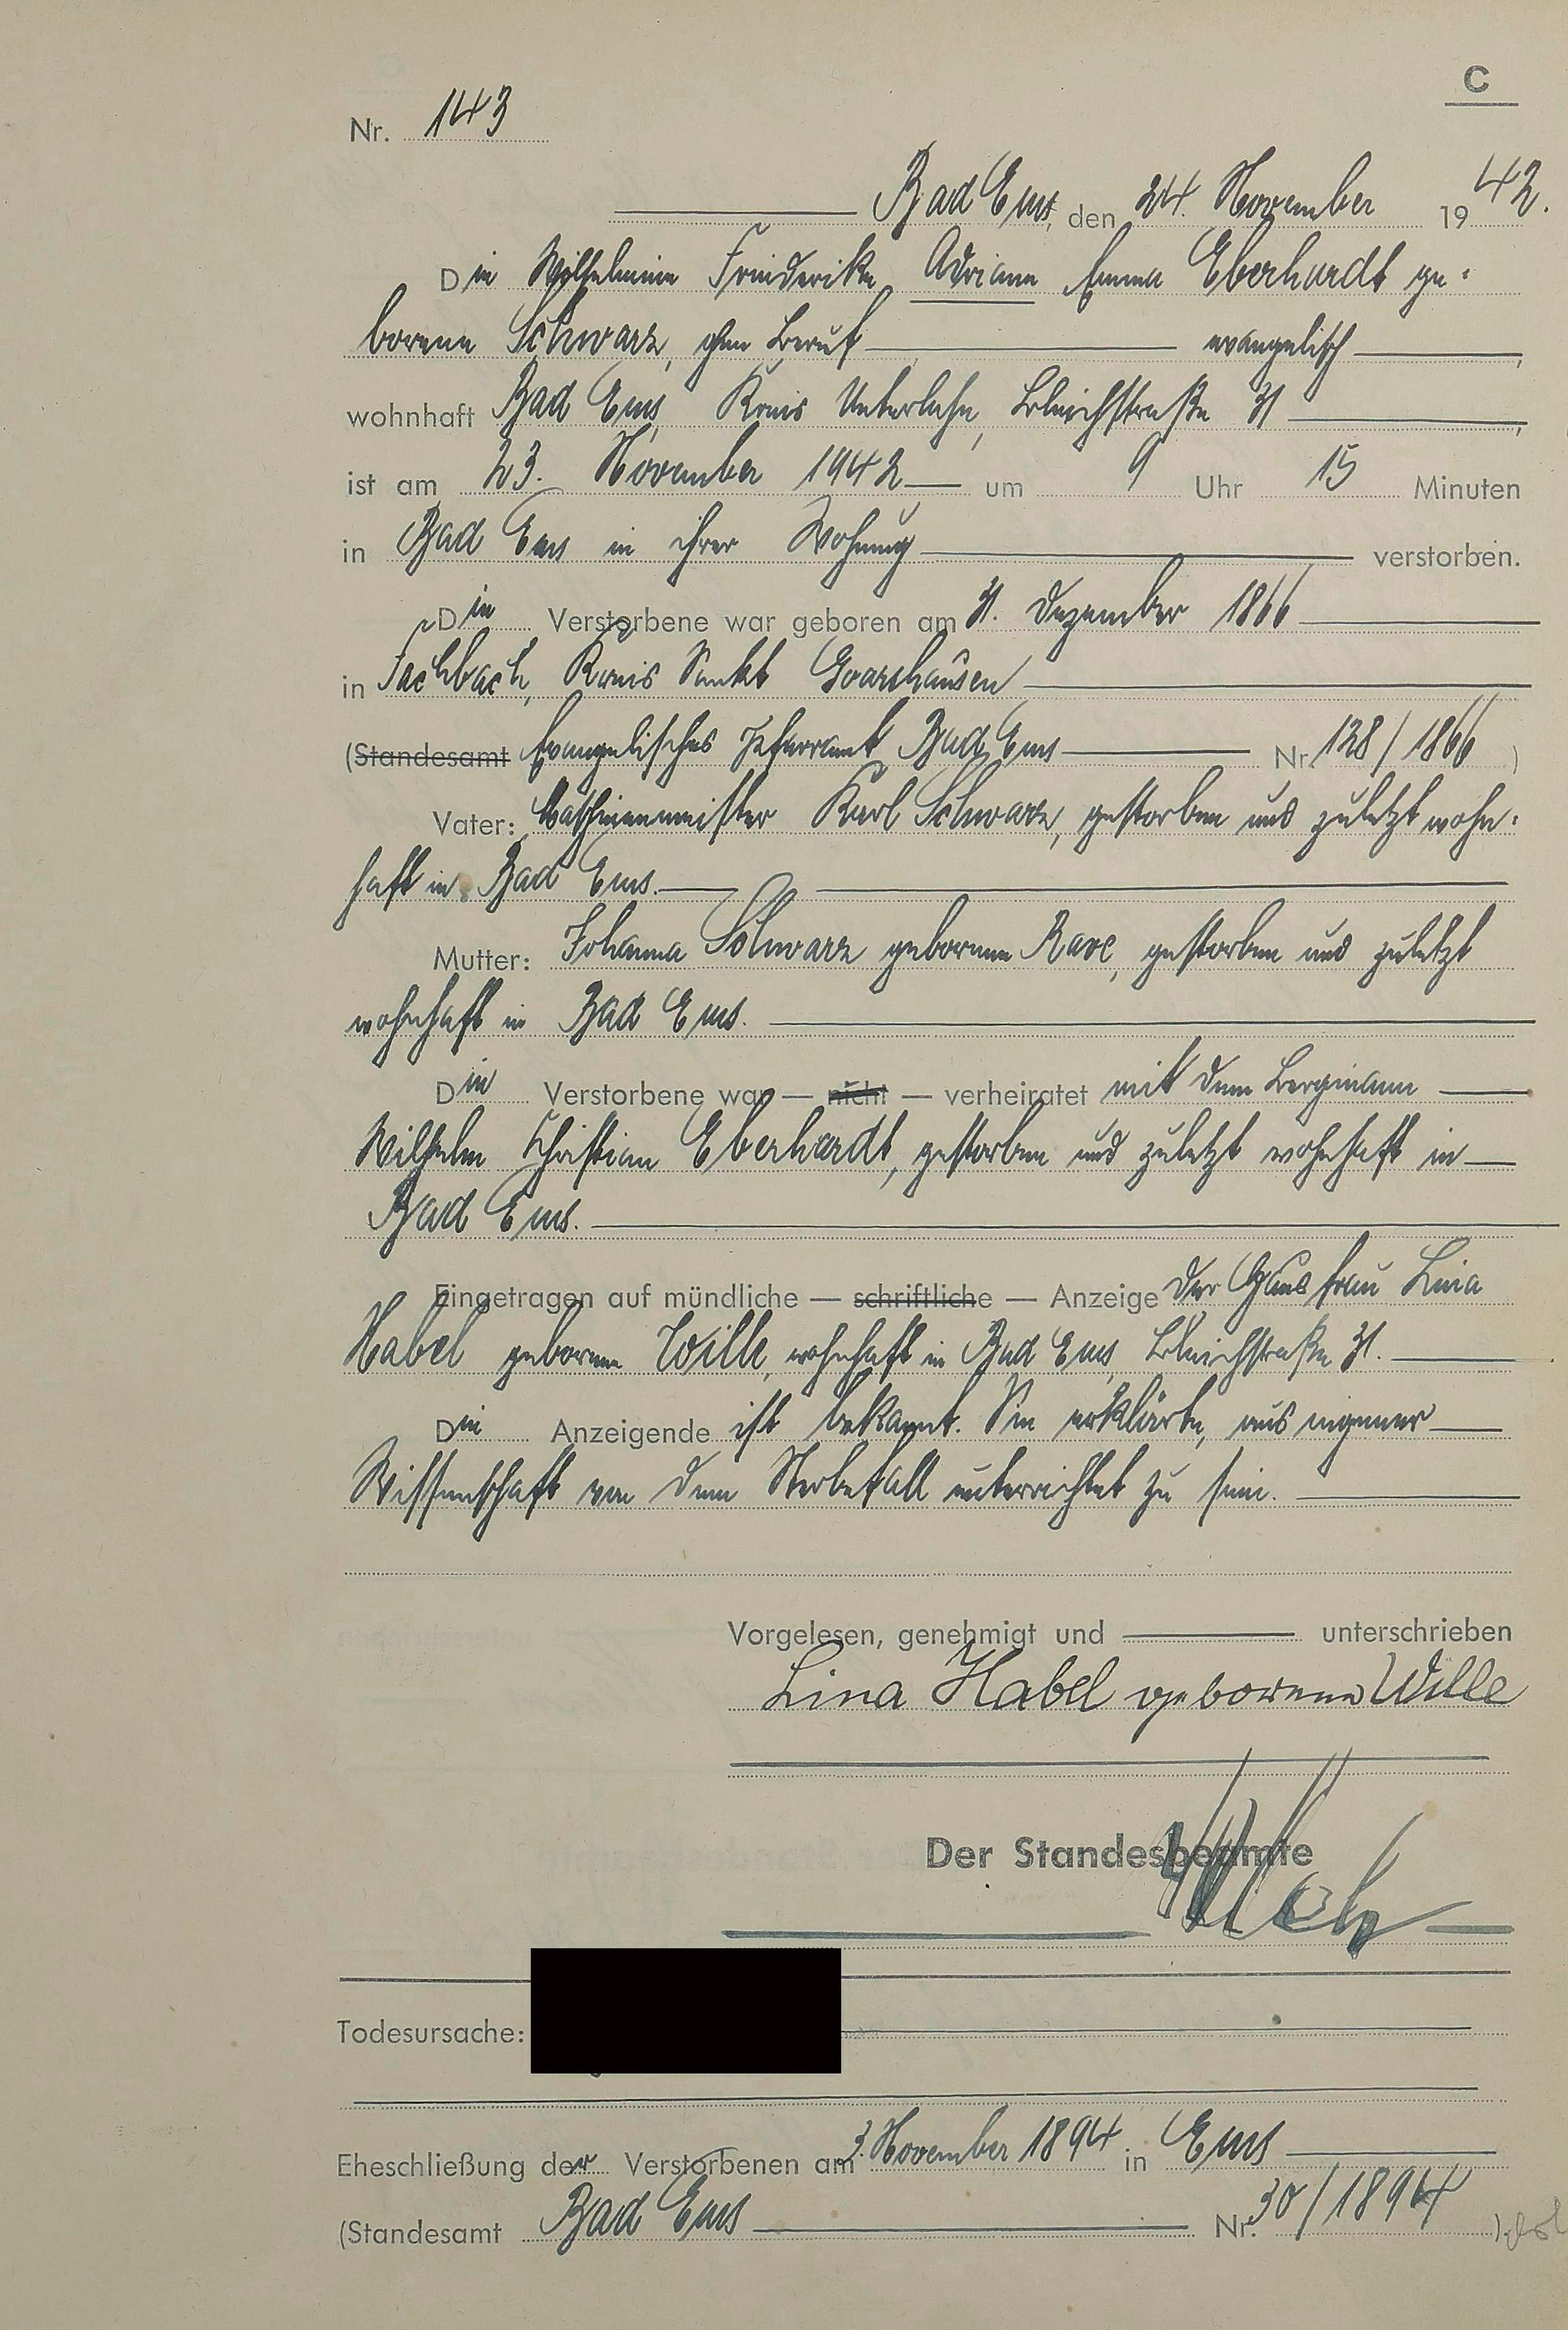 C
Nr. 143
Bad Ems, den 24. November 1942.
Die Wilhelmine Friederike Adriane Emma Eberhardt ge-
borene Schwarz, ohne Beruf evangelisch,
wohnhaft Bad Ems, Kreis Unterlahn, Bleichstraße 31,
ist am 23. November 1942 um 9 Uhr 15 Minuten
in Bad Ems in ihrer Wohnung verstorben.
Die Verstorbene war geboren am 31. Dezember 1866
in Fachbach, Kreis Sankt Goarshausen
(Standesamt Evangelisches Pfarramt Bad Ems Nr. 128/1866)
Vater: Maschinenmeister Karl Schwarz, gestorben und zuletzt wohn-
haft in Bad Ems.
Mutter: Johanna Schwarz geborene Rave, gestorben und zuletzt
wohnhaft in Bad Ems.
Die Verstorbene war — nicht — verheiratet mit dem Bergmann
Wilhelm Christian Eberhardt, gestorben und zuletzt wohnhaft in
Bad Ems.
Eingetragen auf mündliche — schriftliche — Anzeige der Hausfrau Lina
Habel geborene Wille, wohnhaft in Bad Ems, Bleichstraße 31.
Die Anzeigende ist bekannt. Sie erklärte, aus eigener
Wissenschaft von dem Sterbefall unterrichtet zu sein.
Vorgelesen, genehmigt und unterschrieben
Lina Habel geborene Wille
Der Standesbeamte
Todesursache:
Eheschließung der Verstorbenen am 3. November 1894 in Ems
(Standesamt Bad Ems Nr. 30/1894).